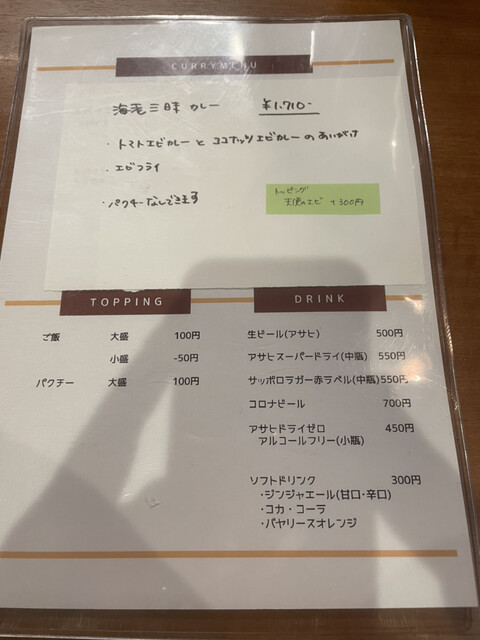 CURRY MENU
海老三昧 カレー ¥1,710-
・トマトエビカレー と ココナッツエビカレー の あいがけ
・エビフライ
・パクチー なしできます
トッピング
天使のエビ +300円
TOPPING
ご飯 大盛 100円
小盛 -50円
パクチー 大盛 100円
DRINK
生ビール(アサヒ) 500円
アサヒスーパードライ(中瓶) 550円
サッポロラガー赤ラベル(中瓶)550円
コロナビール 700円
アサヒドライゼロ 450円
アルコールフリー(小瓶)
ソフトドリンク 300円
・ジンジャエール(甘口・辛口)
・コカ・コーラ
・バヤリースオレンジ